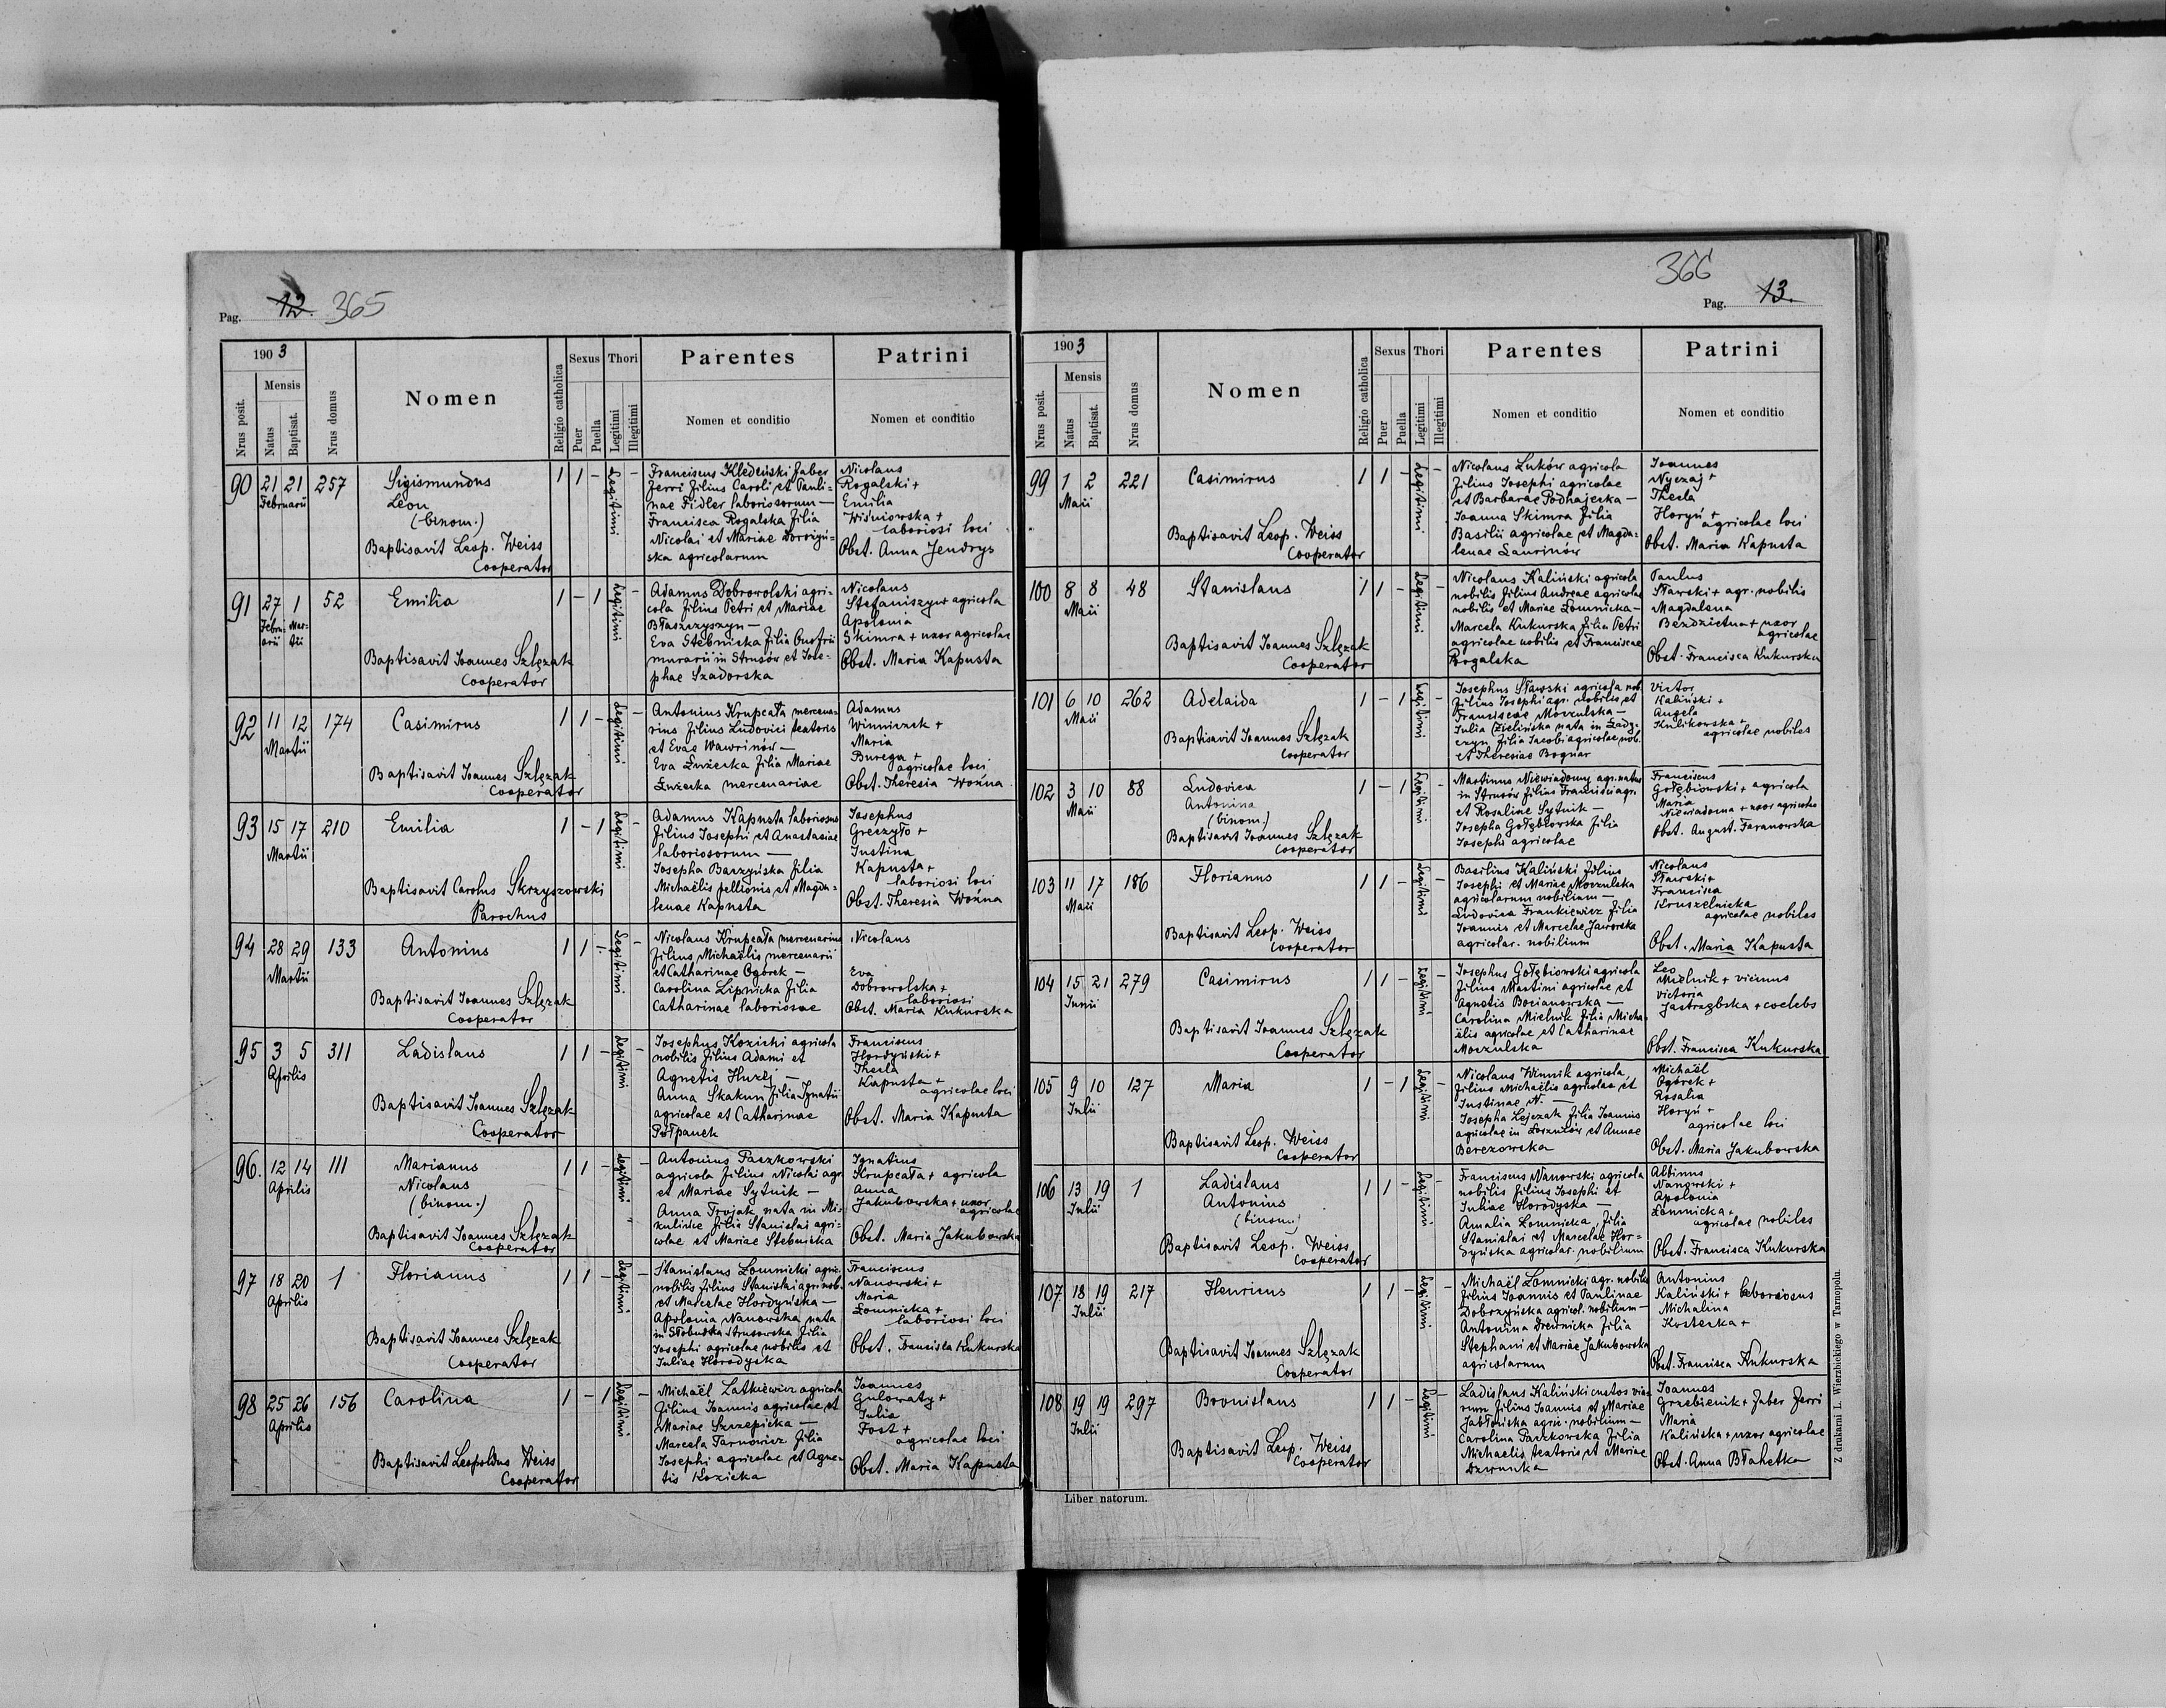 Pag. 12. 365
1903
Nrus posit.
Mensis
Natus
Baptisat.
Nrus domus
Nomen
Religio catholica
Sexus
Puer
Puella
Thori
Legitimi
Illegitimi
Parentes
Nomen et conditio
Patrini
Nomen et conditio
90 21 21 257
Februarii
Sigismundus
Leon
(binom.)
Baptisavit Leop. Weiss
Cooperator
1 1 - Legitimi -
Franciscus Kledeński faber
ferri filius Caroli et Pauli-
nae Fidler laboriosorum —
Francisca Rogalska filia
Nicolai et Mariae
ska agricolarum
Nicolaus
Rogalski +
Emilia
Wiśniowska +
laboriosi loci
Obst. Anna Jendrys
91 27 1 52
Febru- Mar-
arii tii
Emilia
Baptisavit Joannes Szlęzak
Cooperator
1 - 1 Legitimi -
Adamus Dobrowolski agri-
cola filius Petri et Mariae
Błaszczyszyn —
Eva Stebnicka filia Onofrii
murarii in Strusów et Jose-
phae Szadorska
Nicolaus
Stefaniszyn agricola
Apolonia
Skimra + uxor agricolae
Obst. Maria Kapusta
92 11 12 174
Martii
Casimirus
Baptisavit Joannes Szlęzak
Cooperator
1 1 - Legitimi -
Antonius Krupcała mercena-
rius filius Ludovici textoris
et Evae Wawrinów —
Eva Łuzecka filia Mariae
Łuzecka mercenariae
Adamus
Winniczak +
Maria
Burega +
agricolae loci
Obst. Theresia Woźna
93 15 17 210
Martii
Emilia
Baptisavit Carolus Skrzyszowski
Parochus
1 - 1 Legitimi -
Adamus Kapusta laboriosus
filius Josephi et Anastasiae
laboriosorum —
Josepha Barzyńska filia
Michaëlis pellionis et Magda-
lenae Kapusta
Josephus
Greczyło +
Justina
Kapusta +
laboriosi loci
Obst. Theresia Woźna
94 28 29 133
Martii
Antonius
Baptisavit Joannes Szlęzak
Cooperator
1 1 - Legitimi -
Nicolaus Krupcała mercenarius
filius Michaëlis mercenarii
et Catharinae Ogórek —
Carolina Lipnicka filia
Catharinae laboriosae
Nicolaus
Eva
Dobrowolska +
laboriosi
Obst. Maria Kukurska
95 3 5 311
Aprilis
Ladislaus
Baptisavit Joannes Szlęzak
Cooperator
1 1 - Legitimi -
Josephus Kozicki agricola
nobilis filius Adami et
Agnetis Huzij —
Anna Skakun filia Ignatii
agricolae et Catharinae
Półpanek
Franciscus
Hordyński +
Thecla
Kapusta +
agricolae loci
Obst. Maria Kapusta
96. 12 14 111
Aprilis
Marianus
Nicolaus
(binom.)
Baptisavit Joannes Szlęzak
Cooperator
1 1 - Legitimi -
Antonius Paczkowski
agricola filius Nicolai agr.
et Mariae Sytnik —
Anna Trojak nata in Mi-
kulince filia Stanislai agri-
colae et Mariae Stebnicka
Ignatius
Krupcała + agricola
Anna
Jakubowska + uxor
agricolae
Obst. Maria Jakubowska
97 18 20 1
Aprilis
Florianus
Baptisavit Joannes Szlęzak
Cooperator
1 1 - Legitimi -
Stanislaus Łomnicki agric.
nobilis filius Stanislai agr. nob.
et Marcelae Hordyńska —
Apolonia Nanowska nata
in Słobudka Strusowska filia
Josephi agricolae nobilis et
Juliae Horodyska
Franciscus
Nanowski +
Maria
Łomnicka +
laboriosi loci
Obst. Francisca Kukurska
98 25 26 156
Aprilis
Carolina
Baptisavit Leopoldus Weiss
Cooperator
1 - 1 Legitimi -
Michaël Latkiewicz agricola
filius Joannis agricolae et
Mariae Szczepicka —
Marcela Tarnowicz filia
Josephi agricolae et Agne-
tis Kozicka
Joannes
Gulowaty +
Julia
Fost +
agricolae loci
Obst. Maria Kapusta
366
Pag. 13.
1903
Nrus posit.
Mensis
Natus
Baptisat.
Nrus domus
Nomen
Religio catholica
Sexus
Puer
Puella
Thori
Legitimi
Illegitimi
Parentes
Nomen et conditio
Patrini
Nomen et conditio
99 1 2 221
Maii
Casimirus
Baptisavit Leop. Weiss
Cooperator
1 1 - Legitimi -
Nicolaus Luków agricola
filius Josephi agricolae
et Barbarae Podhajecka —
Joanna Skimra filia
Basilii agricolae et Magda-
lenae Laurinów
Joannes
Nyczaj +
Thecla
Horyń +
agricolae loci
Obst. Maria Kapusta
100 8 8 48
Maii
Stanislaus
Baptisavit Joannes Szlęzak
Cooperator
1 1 - Legitimi -
Nicolaus Kaliński agricola
nobilis filius Andreae agricolae
nobilis et Mariae Łomnicka —
Marcela Kukurska filia Petri
agricolae nobilis et Franciscae
Rogalska
Paulus
Sławski + agr. nobilis
Magdalena
Bezdzietna + uxor
agricolae
Obst. Francisca Kukurska
101 6 10 262
Maii
Adelaida
Baptisavit Joannes Szlęzak
Cooperator
1 - 1 Legitimi -
Josephus Sławski agricola nob.
filius Josephi agr. nobilis et
Franciscae Moczulska —
Julia Zielińska nata in Łady-
czyn filia Jacobi agricolae nob.
et Theresiae Bognar
Victor
Kaliński +
Angela
Kulikowska +
agricolae nobiles
102 3 10 88
Maii
Ludovica
Antonina
(binom.)
Baptisavit Joannes Szlęzak
Cooperator
1 - 1 Legitimi -
Martinus Niewiadomy agr. natus
in Strusów filius Francisci agr.
et Rosaliae Sytnik —
Josepha Gołębiowska filia
Josephi agricolae
Franciscus
Gołębiowski + agricola
Maria
Niewiadoma + uxor agricolae
Obst. August. Faranowska
103 11 17 186
Maii
Florianus
Baptisavit Leop. Weiss
Cooperator
1 1 - Legitimi
Basilius Kaliński filius
Josephi et Mariae Moczulska
agricolarum nobilium —
Ludovica Frankiewicz filia
Joannis et Marcelae Jaworska
agricolar. nobilium
Nicolaus
Sławski +
Francisca
Kruszelnicka
agricolae nobiles
Obst. Maria Kapusta
104 15 21 279
Junii
Casimirus
Baptisavit Joannes Szlęzak
Cooperator
1 1 - Legitimi -
Josephus Gołębiowski agricola
filius Martini agricolae et
Agnetis Bocianowska —
Carolina Mielnik filia Micha-
ëlis agricolae et Catharinae
Moczulska
Leo
Mielnik + viduus
Victoria
Jastrzębska + coelebs
Obst. Francisca Kukurska
105 9 10 127
Julii
Maria
Baptisavit Leop. Weiss
Cooperator
1 - 1 Legitimi -
Nicolaus Winnik agricola,
filius Michaëlis agricolae et
Justinae N. —
Josepha Lejczak filia Joannis
agricolae in Łoszniów et Annae
Berezowska
Michaël
Ogórek +
Rosalia
Horyń +
agricolae loci
Obst. Maria Jakubowska
106 13 19 1
Julii
Ladislaus
Antonius
(binom.)
Baptisavit Leop. Weiss
Cooperator
1 1 - Legitimi -
Franciscus Nanowski agricola
nobilis filius Josephi et
Juliae Horodyska —
Amalia Łomnicka, filia
Stanislai et Marcelae Hor-
dyńska agricolar. nobilium
Albinus
Nanowski +
Apolonia
Łomnicka +
agricolae nobiles
Obst. Francisca Kukurska
107 18 19 217
Julii
Henricus
Baptisavit Joannes Szlęzak
Cooperator
1 1 - Legitimi -
Michaël Łomnicki agr. nobilis
filius Joannis et Paulinae
Dobrzyńska agricol. nobilium —
Antonina Drewnicka filia
Stephani et Mariae Jakubowska
agricolarum
Antonius
Kaliński + laboriosus
Michalina
Kostecka +
Obst. Francisca Kukurska
108 19 19 297
Julii
Bronislaus
Baptisavit Leop. Weiss
Cooperator
1 1 - Legitimi -
Ladislaus Kaliński custos via-
rum filius Joannis et Mariae
Jabłońska agric. nobilium —
Carolina Paczkowska filia
Michaelis textoris et Mariae
Joannes
Grzebienik + faber ferri
Maria
Kalińska + uxor agricolae
Obst. Anna Błahetka
Liber natorum.
Z drukarni L. Wierzbickiego w Tarnopolu.